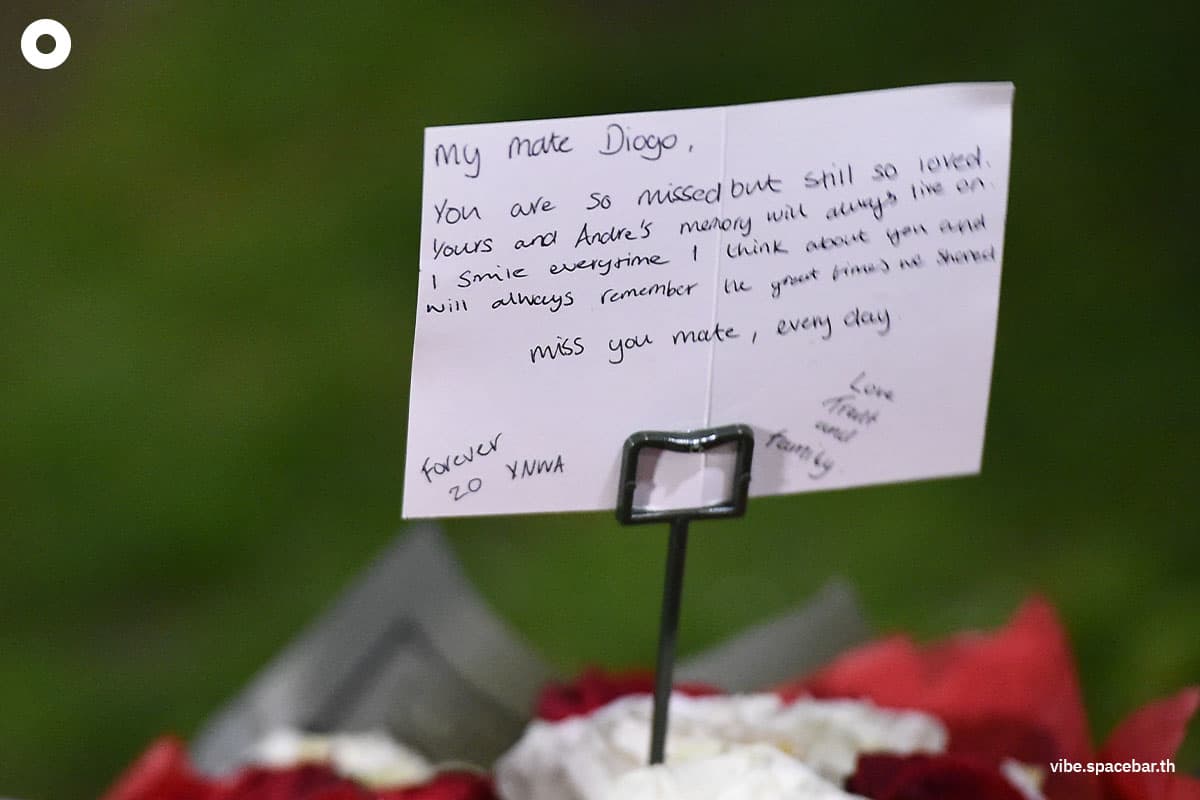 My mate Diogo,
You are so missed but still so loved.
Yours and Andre's memory will always live on.
I smile everytime I think about you and
will always remember the great times we shared
miss you mate, every day
Love
Trent
and
family
Forever
20 YNWA
vibe.spacebar.th